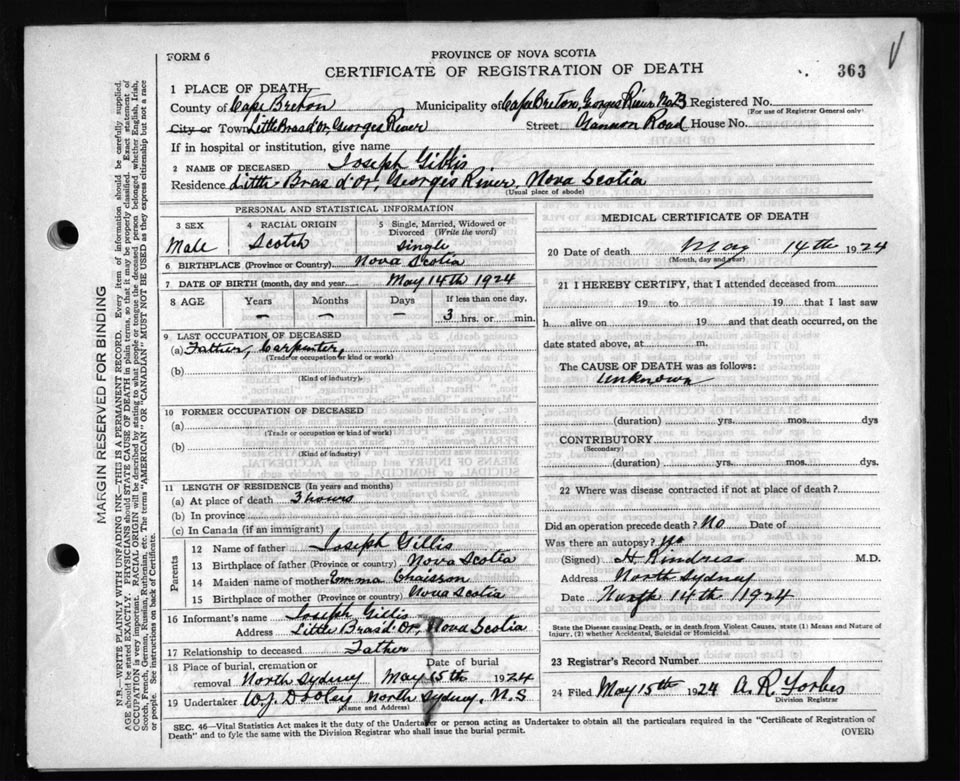 FORM 6
PROVINCE OF NOVA SCOTIA
CERTIFICATE OF REGISTRATION OF DEATH
363
1 PLACE OF DEATH
County of Cape Breton Municipality of Cape Breton, Georges River No 23 Registered No.
(For use of Registrar General only)
City or Town Little Bras d'Or, Georges River Street Gannon Road House No.
If in hospital or institution, give name
2 NAME OF DECEASED Joseph Gillis
Residence Little Bras d'Or, Georges River, Nova Scotia
(Usual place of abode)
PERSONAL AND STATISTICAL INFORMATION
3 SEX 4 RACIAL ORIGIN 5 Single, Married, Widowed or Divorced (Write the word)
Male Scotch Single
6 BIRTHPLACE (Province or Country) Nova Scotia
7 DATE OF BIRTH (month, day and year) May 14th 1924
8 AGE Years Months Days If less than one day,
— — — 3 hrs. or min.
9 LAST OCCUPATION OF DECEASED
(a) Father, Carpenter,
(Trade or occupation or kind of work)
(b)
(Kind of industry)
10 FORMER OCCUPATION OF DECEASED
(a)
(Trade or occupation or kind of work)
(b)
(Kind of industry)
11 LENGTH OF RESIDENCE (In years and months)
(a) At place of death 3 hours
(b) In province
(c) In Canada (if an immigrant)
Parents
12 Name of father Joseph Gillis
13 Birthplace of father (Province or country) Nova Scotia
14 Maiden name of mother Emma Chaisson
15 Birthplace of mother (Province or country) Nova Scotia
16 Informant's name Joseph Gillis
Address Little Bras d'Or, Nova Scotia
17 Relationship to deceased Father
18 Place of burial, cremation or removal North Sydney Date of burial May 15th 1924
19 Undertaker W.J. Dooley North Sydney, N.S
(Name and Address)
MEDICAL CERTIFICATE OF DEATH
20 Date of death May 14th 1924
(Month, day and year)
21 I HEREBY CERTIFY, that I attended deceased from
19 to 19 that I last saw
h alive on 19 and that death occurred, on
date stated above, at m.
The CAUSE OF DEATH was as follows:
Unknown
(duration) yrs. mos. dys
CONTRIBUTORY
(Secondary)
(duration) yrs. mos. dys.
22 Where was disease contracted if not at place of death?
Did an operation precede death? No Date of
Was there an autopsy? No
(Signed) H. Kindress M.D.
Address North Sydney
Date 14th 1924
State the Disease causing Death, or in death from Violent Causes, state (1) Means and Nature of
Injury, (2) whether Accidental, Suicidal or Homicidal.
23 Registrar's Record Number
24 Filed May 15th 1924 A. R. Forbes
Division Registrar
SEC. 46—Vital Statistics Act makes it the duty of the Undertaker or person acting as Undertaker to obtain all the particulars required in the "Certificate of Registration of
Death" and to fyle the same with the Division Registrar who shall issue the burial permit.
(OVER)
MARGIN RESERVED FOR BINDING
N.B.—WRITE PLAINLY WITH UNFADING INK—THIS IS A PERMANENT RECORD. Every item of information should be carefully supplied.
AGE should be stated EXACTLY. PHYSICIANS should STATE CAUSE OF DEATH in plain terms, so that it may be properly classified. Exact statement of
OCCUPATION is very important. RACIAL ORIGIN will be described by stating to what people or tongue the deceased person belonged whether English, Irish,
Scotch, French, German, Russian, Ruthenian, etc. The terms "AMERICAN" OR "CANADIAN" MUST NOT BE USED as they express citizenship but not a race
or people. See instructions on back of Certificate.